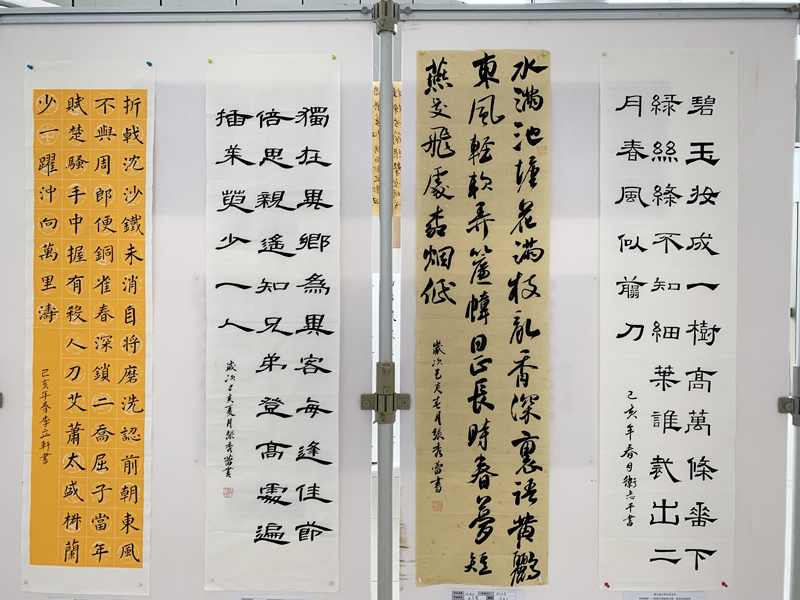 碧玉妝成一樹高萬條垂下
綠絲絛不知細葉誰裁出二
月春風似剪刀
己亥年春月衛志平書
水滿池塘花滿枝亂香深裏語黃鸝
東風輕軟弄簾幃日正長時春夢短
燕交飛處柳烟低
歲次己亥春月張秀當書
獨在異鄉為異客每逢佳節
倍思親遙知兄弟登高處遍
插茱萸少一人
歲次己亥夏月張秀當書
折戟沈沙鐵未消自將磨洗認前朝東風
不與周郎便銅雀春深鎖二喬屈子當年
賦楚騷手中握有殺人刀艾蕭太盛椒蘭
少一躍沖向萬里濤
己亥年春李立軒書